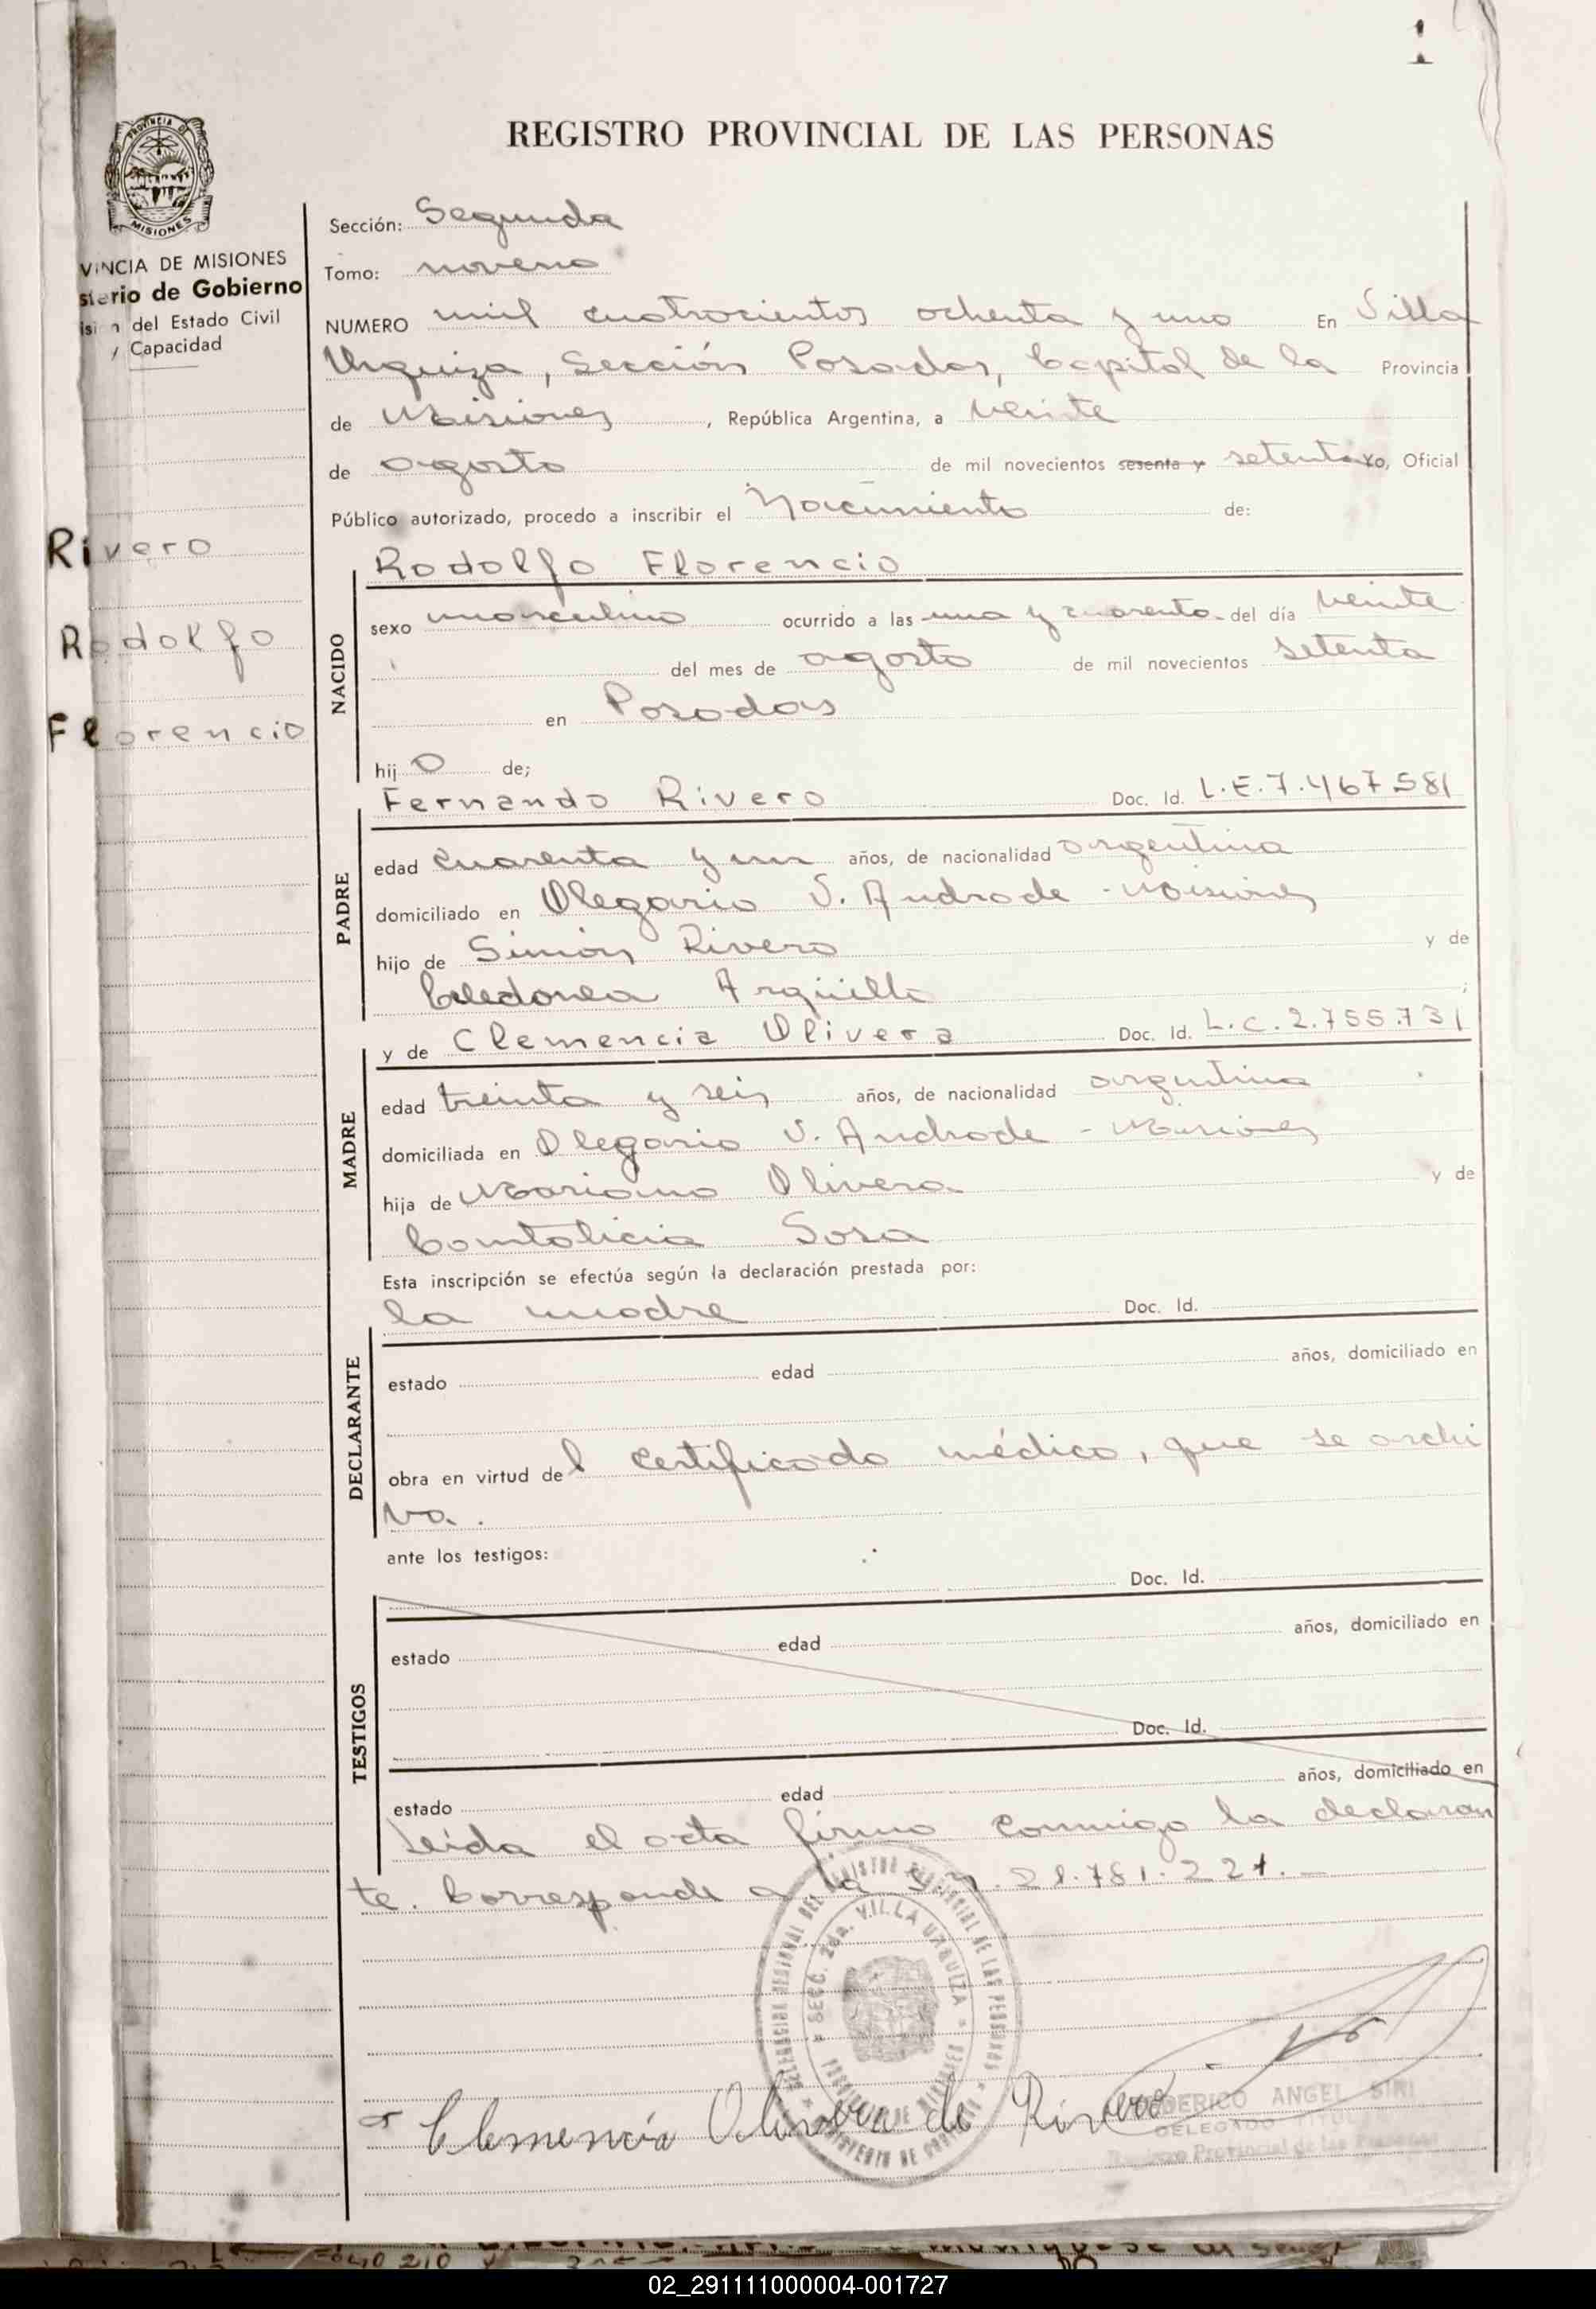 1
REGISTRO PROVINCIAL DE LAS PERSONAS
PROVINCIA DE
MISIONES
VINCIA DE MISIONES
sterio de Gobierno
del Estado Civil
y Capacidad
Sección: Segunda
Tomo: noveno
NUMERO mil cuatrocientos ochenta y uno En Villa
Urquiza, Sección Posadas, Capital de la Provincia
de Misiones, República Argentina, a veinte
de agosto de mil novecientos sesenta y setenta yo, Oficial
Público autorizado, procedo a inscribir el Nacimiento de:
Rivero
Rodolfo
Florencio
NACIDO
Rodolfo Florencio
sexo masculino ocurrido a las una y cuarenta del día veinte
del mes de agosto de mil novecientos setenta
en Posadas
hijo de;
PADRE
Fernando Rivero Doc. Id. L.E.7.467.581
edad cuarenta y un años, de nacionalidad argentina
domiciliado en Olegario V. Andrade - Misiones
hijo de Simón Rivero y de
Celedonea Argüello;
MADRE
y de Clemencia Olivera Doc. Id. L.C.2.755.731
edad treinta y seis años, de nacionalidad argentina
domiciliada en Olegario V. Andrade - Misiones
hija de Mariano Olivera y de
Sosa
Esta inscripción se efectúa según la declaración prestada por:
DECLARANTE
la madre Doc. Id.
estado edad años, domiciliado en
obra en virtud del certificado médico, que se archi
va.
ante los testigos:
TESTIGOS
Doc. Id.
estado edad años, domiciliado en
Doc. Id.
estado edad años, domiciliado en
Leida el acta firma conmigo la declaran
te. Corresponde a la 21.781.221.-
SECC. 2da. VILLA URQUIZA
Clemencia Olivera de Rivero
FEDERICO ANGEL SIRI
DELEGADO TITULAR
Registro Provincial de las Personas
02_291111000004-001727